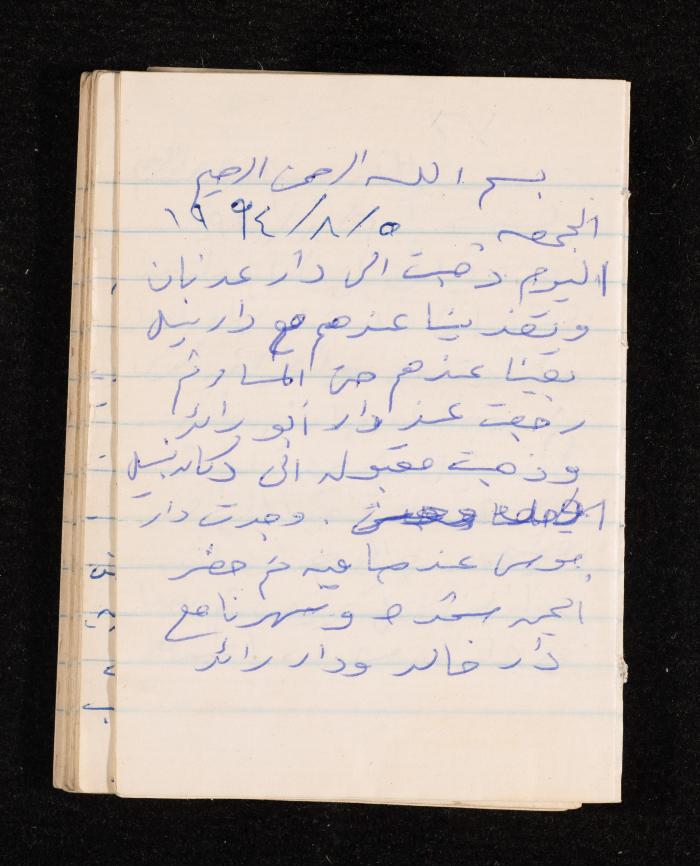 بسم الله الرحمن الرحيم
الجمعه ١٩٩٤/٨/٥
اليوم ذهبت الى دار عدنان
وتغدينا عندهم مع دار نبيل
بقينا عندهم حتى المسا وثم
رجعت عند دار أبو رائد
وذهبت مقبوله الى دكان نبيل
وجدت دار
موسى عند صافيه ثم حضر
الجميع وسهرنا مع
دار خالد ودار رائد